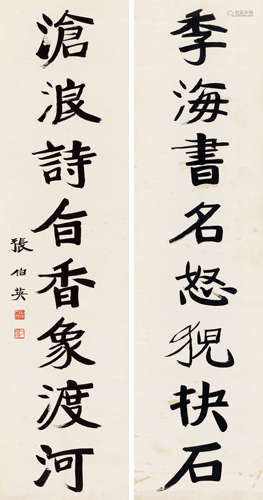 季海書名怒猊抉石
滄浪詩旨香象渡河
張伯英